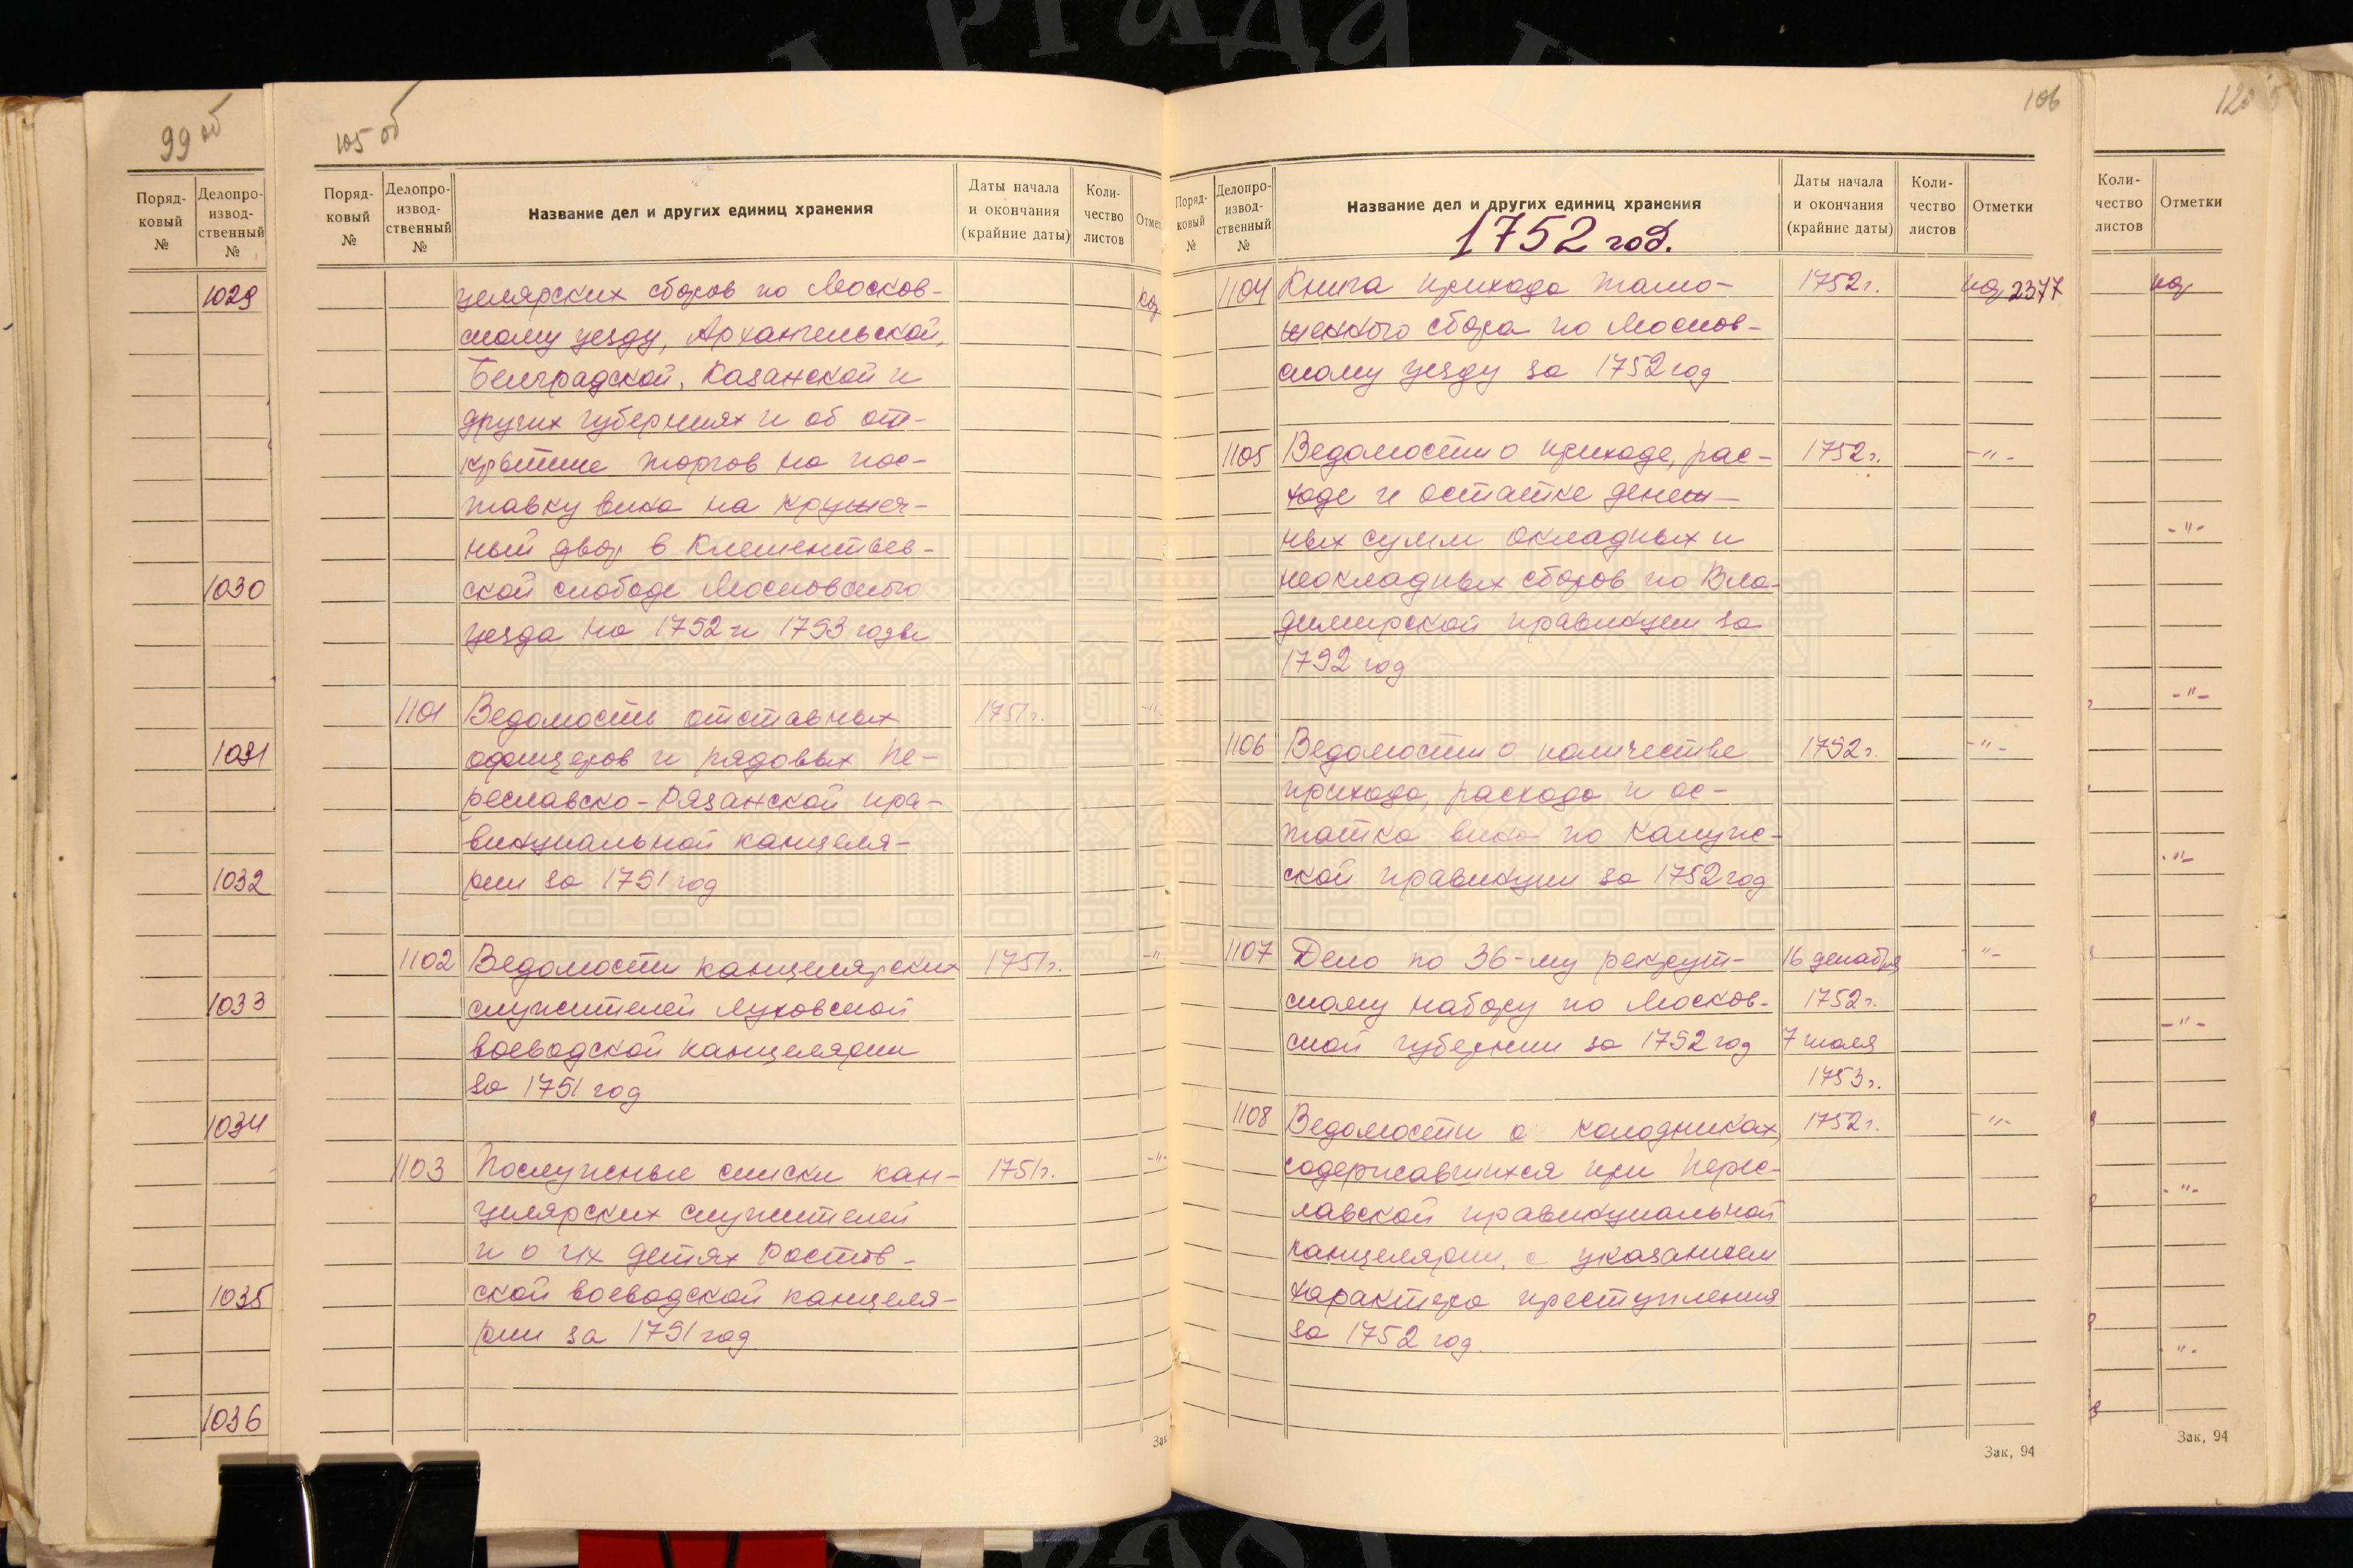 99 об
Поряд-
ковый
№
Делопро-
извод-
ственный
№
1029
1030
1031
1032
1033
1034
1035
1036
105 об
Поряд-
ковый
№
Делопро-
извод-
ственный
№
Название дел и других единиц хранения
Даты начала
и окончания
(крайние даты)
Коли-
чество
листов
Отмет
целярских сборов по Москов-
скому уезду, Архангельской,
Белградской, Казанской и
других губерниях и об от-
крытие торгов на пос-
тавку вина на кружеч-
ный двор в Клементьев-
ской слободе Московского
уезда на 1752 и 1753 годы
1101 Ведомость отставных 1751 г. -"-
офицеров и рядовых Пе-
реславско-Рязанской про-
винциальной канцеля-
рии за 1751 год
1102 Ведомости канцелярских 1751 г. -"-
служителей Луховской
воеводской канцелярии
за 1751 год
1103 Послужные списки кан- 1751 г. -"-
целярских служителей
и о их детях Ростов-
ской воеводской канцеля-
рии за 1751 год
Зак
106
Поряд-
ковый
№
Делопро-
извод-
ственный
№
Название дел и других единиц хранения
Даты начала
и окончания
(крайние даты)
Коли-
чество
листов
Отметки
1752 год.
1104 Книга прихода тамо- 1752 г. 2377
женного сбора по Москов-
скому уезду за 1752 год
1105 Ведомости о приходе, рас- 1752 г. -"-
ходе и остатке денеж-
ных сумм окладных и
неокладных сборов по Вла-
димирской правинции за
1752 год
1106 Ведомости о количестве 1752 г. -"-
прихода, расхода и ос-
татка вина по Калуж-
ской правинции за 1752 год
1107 Дело по 36-му рекрут- 16 декабря -"-
скому набору по Москов- 1752 г.
ской губернии за 1752 год 7 июля
1753 г.
1108 Ведомости о колодниках, 1752 г. -"-
содержавшихся при Перес-
лавской правинциальной
канцелярии, с указанием
характера преступления
за 1752 год.
Зак, 94
Коли-
чество
листов
Отметки
-"-
-"-
-"-
-"-
-"-
-"-
Зак, 94